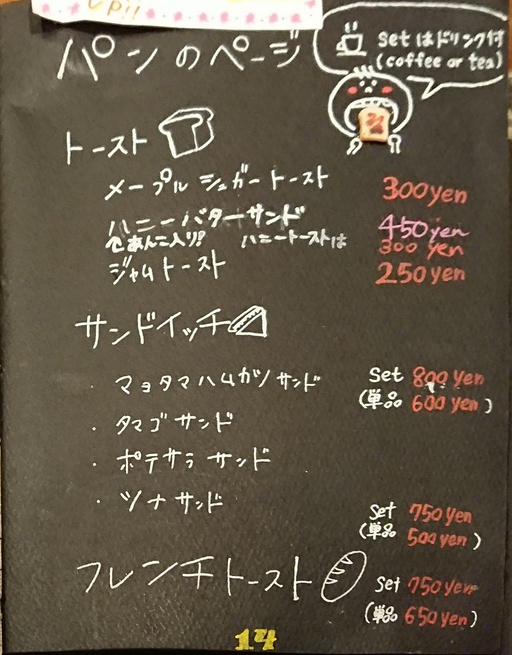 up!!
パンのページ
Setはドリンク付
(coffee or tea)
トースト
メープルシュガートースト 300yen
ハニーバターサンド 450yen
あんこ入り! ハニートーストは 300 yen
ジャムトースト 250yen
サンドイッチ
・マヨタマハムカツサンド Set 800yen
(単品 600yen)
・タマゴサンド
・ポテサラサンド
・ツナサンド Set 750yen
(単品 500yen)
フレンチトースト Set 750yen
(単品 650yen)
14